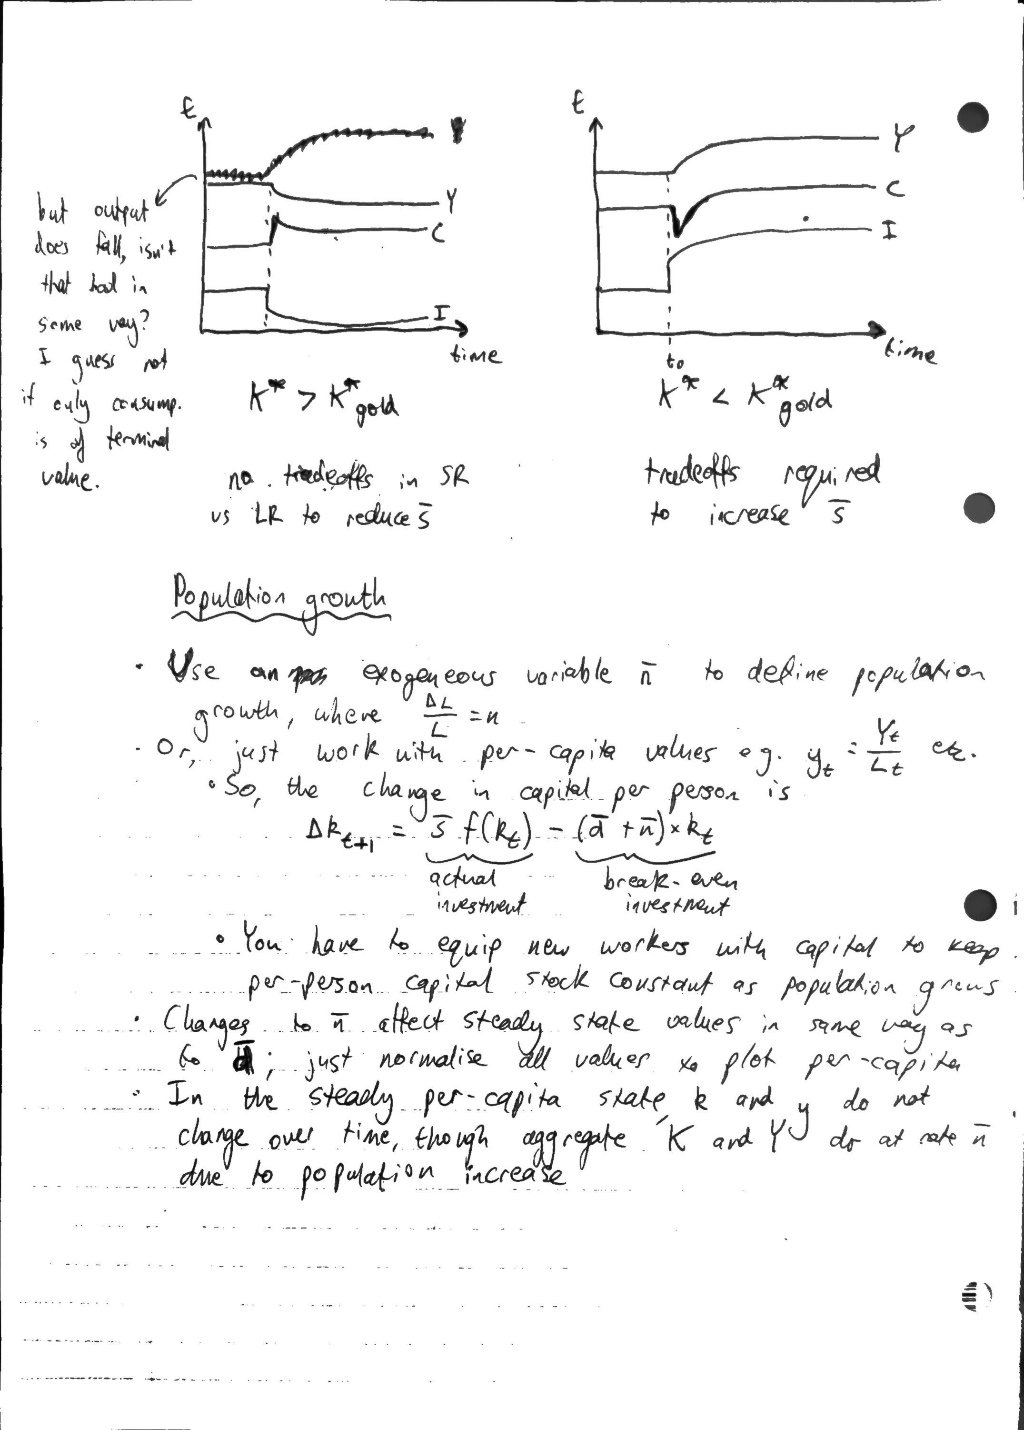 £
Y
Y
C
I
time
but output
does fall, isn't
that bad in
some way?
I guess not
if only consump.
is of terminal
value.
K* > K*gold
no tradeoffs in SR
vs LR to reduce s̄
£
Y
C
I
t₀
time
K* < K*gold
tradeoffs required
to increase s̄
Population growth
• Use an exogeneous variable n̄ to define population
growth, where ΔL/L = n
• Or, just work with per-capita values e.g. yₜ = Yₜ/Lₜ etc.
• So, the change in capital per person is
Δkₜ₊₁ = s̄ f(kₜ) − (d̄ + n̄) × kₜ
actual investment
break-even investment
• You have to equip new workers with capital to keep
per-person capital stock constant as population grows
• Changes to n̄ affect steady state values in same way as
to d̄; just normalise all values to plot per-capita
• In the steady per-capita state, k and y do not
change over time, though aggregate K and Y do at rate n̄
due to population increase